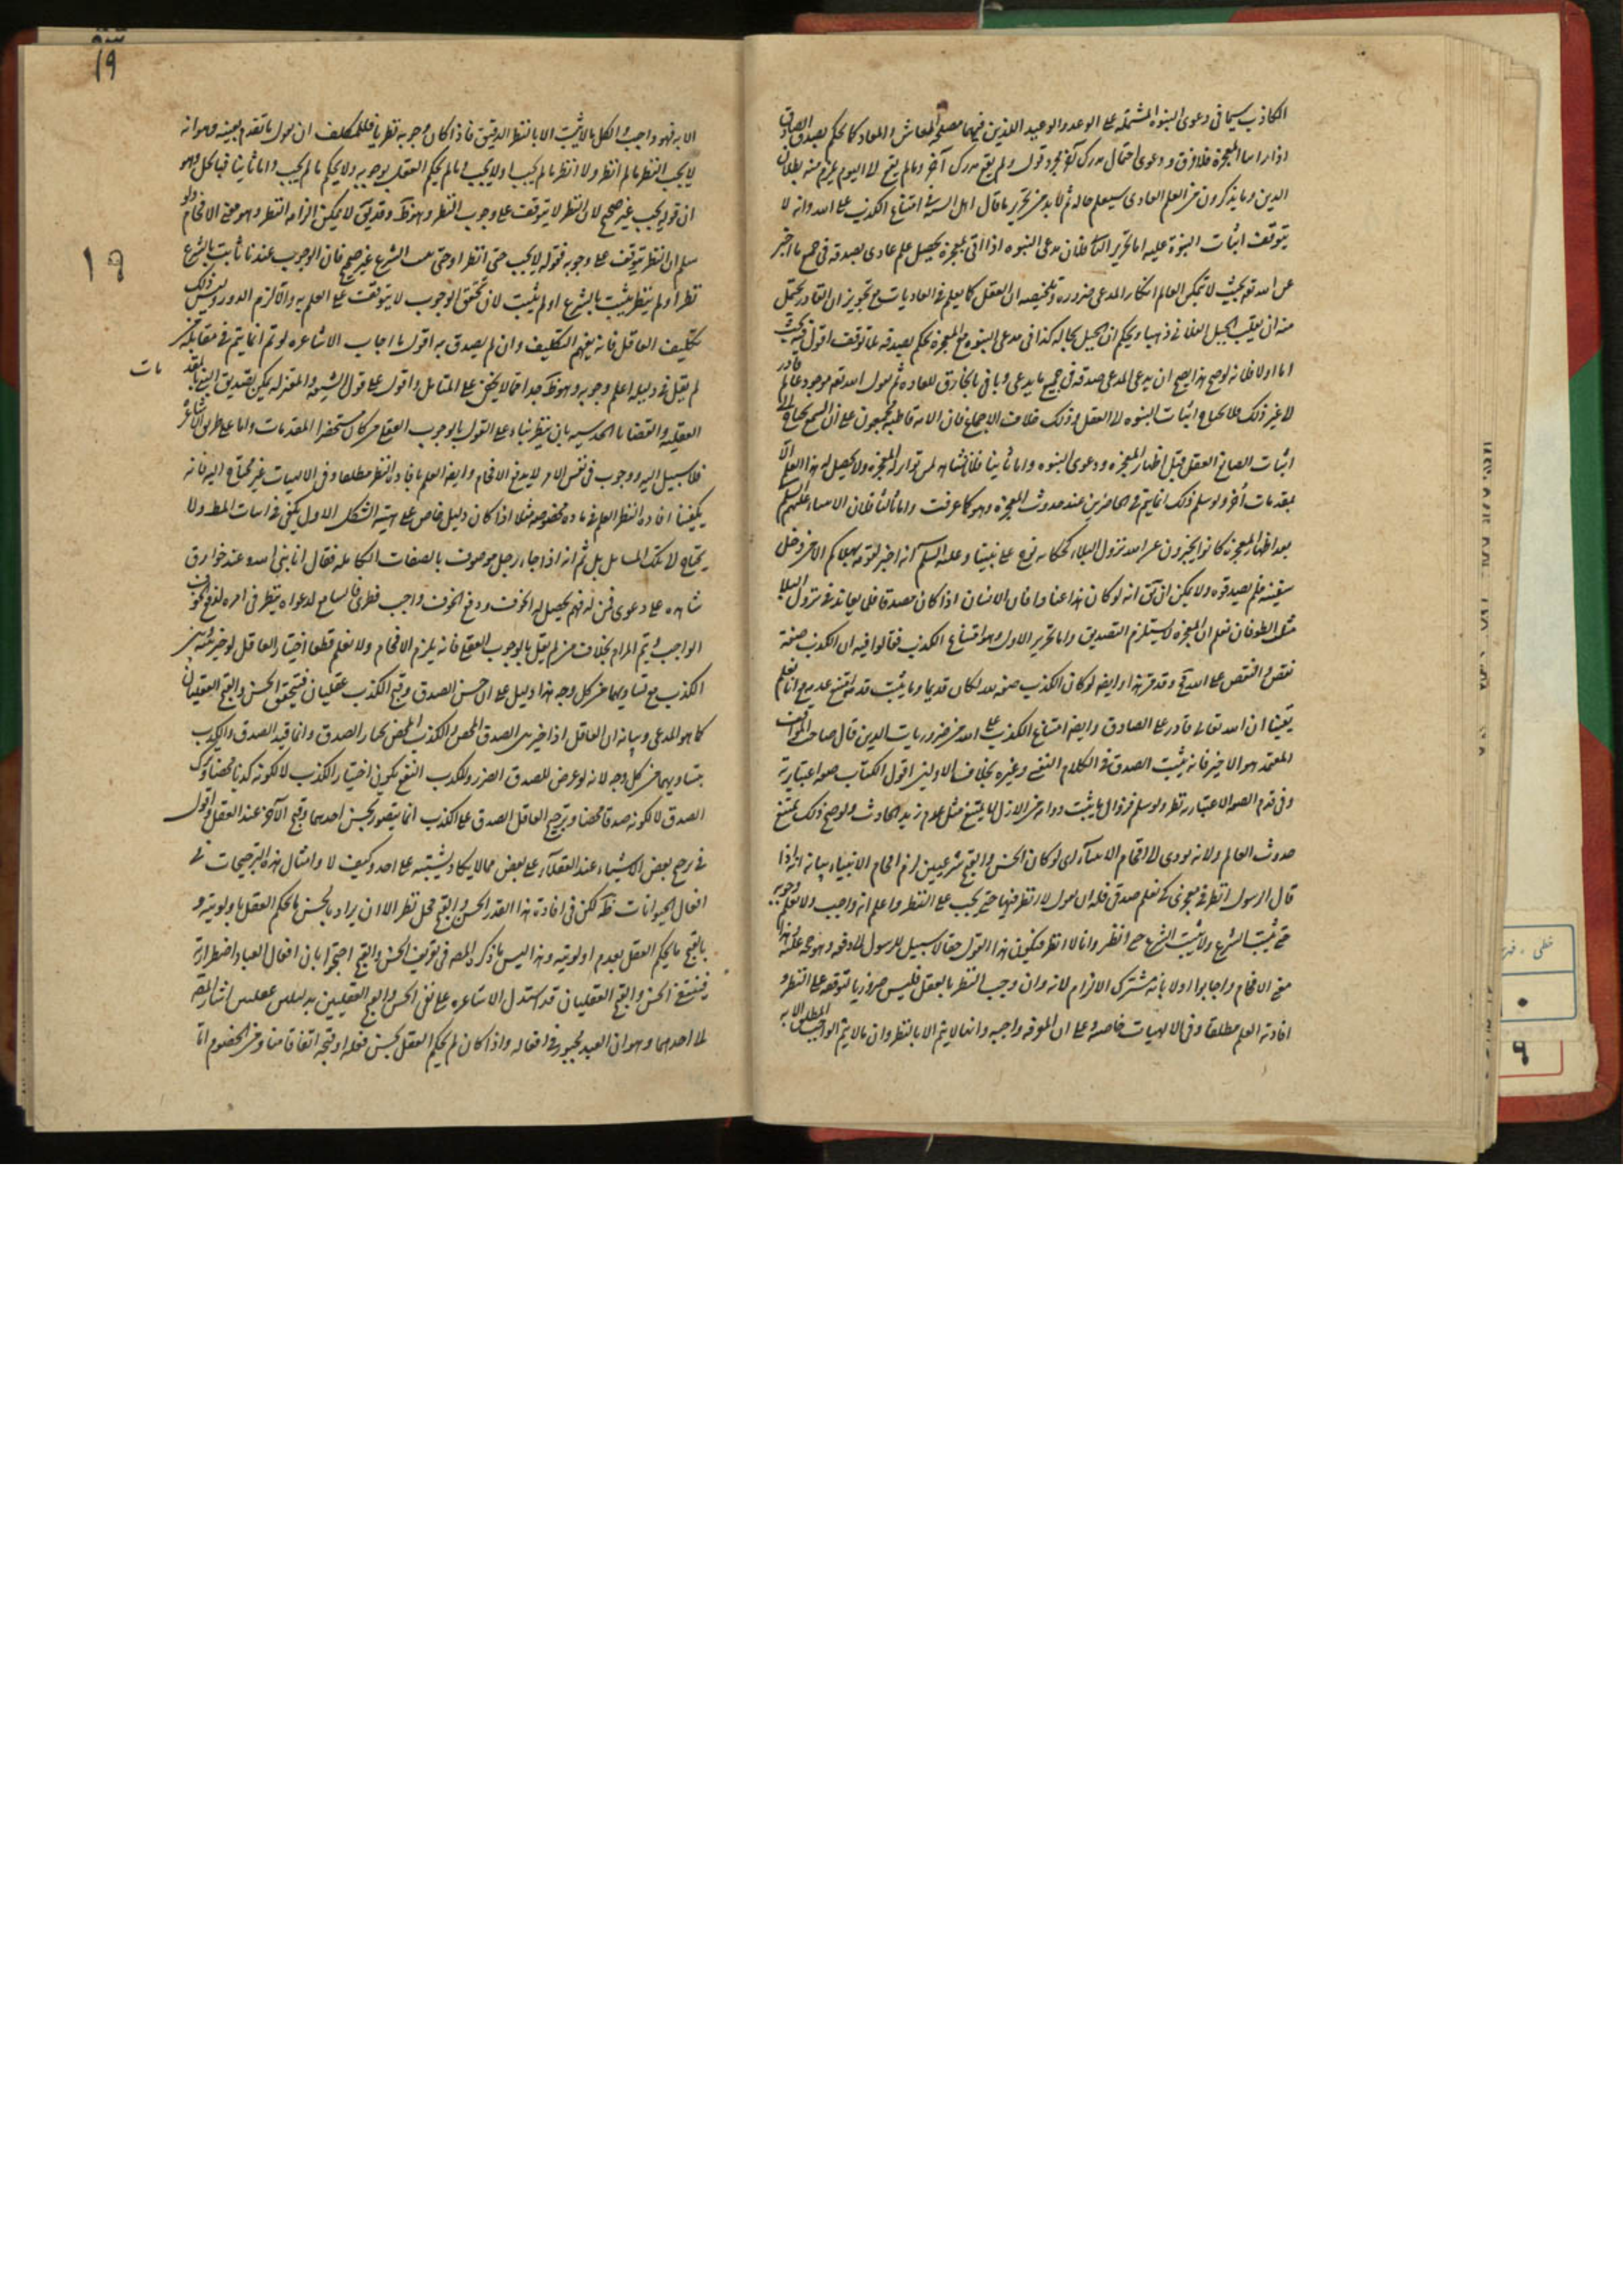 الكاذب سيما فى دعوى النبوه المشتمله على الوعد والوعيد اللذين فيهما مصلحه المعاش والمعاد كما يحكم بصدق الصادق
الدين وما يذكرون من العلم العادى سيعلم حاله ثم لابد من تحرير ما قال اهل السنه امتناع الكذب على الله وانه لا
يتوقف اثبات النبوة عليه اما تحرير فان مدعى النبوه اذا اتى بمعجزة يحصل علم عادى بصدقه فى جميع ما اخبر
عن الله تعم بحيث لا تمكن العالم انكار المدعى ضروره وتلخيصه ان العقل كما يعلم فى العاديات مع تجويز ان القادر
منه ان يقلب الجبل ذهبا ويحكم ان الجبل بحاله كذا فى مدعى النبوه مع المعجزه يحكم بصدقه بلا توقف اقول فيه بحث
اما اولا فلانه لو صح هذا يصح ان يدعى المدعى صدقه فى جميع ما يدعى وياتى بالخارق للعاده ثم يقول الله تعم موجود عالم قادر
لا غير ذلك فلا يحتاج اثبات النبوه لا العقل وذلك خلاف الاجماع فان الامه قاطبة مجمعون على ان السمع يحتاج الى
اثبات الصانع العقل قبل اظهار المعجزه ودعوى النبوه واما ثانيا فلانا
بمقدمات أخر ولو سلم ذلك انما يتم فى الحاضرين عند حدوث المعجزه وهو كما عرفت واما ثالثا فلان الانبياء عليهم السلم
بعد اظهار المعجزه كانوا يخبرون عن الله نزول البلاء كحكايه نوح على نبينا وعليه السلم انه اخبر قومه
سفينه فلم يصدقوه ولا يمكن ان يق انه لو كان هذا عنادا فان الانسان اذا كان مصدقا فلم يعاند فى نزول البلا
مثل الطوفان نعلم ان المعجزه لا يستلزم التصديق واما تحرير الاول وهو امتناع الكذب فقالوا فيه ان الكذب صفة
نقص والنقص على الله مح وقد مر هذا وايضا لو كان الكذب صفه لله لكان قديما وما يثبت قدمه امتنع عدمه مع انا نعلم
يقينا ان الله تعالى قادر على الصادق وايضا امتناع الكذب على الله من ضروريات الدين قال صاحب المواقف
المعتمد هو الاخير فانه يثبت الصدق فى الكلام النفسى وغيره بخلاف الاولين اقول الكتاب صفه اعتبارية
وفى قدم الصفه الاعتباريه نظر ولو سلم فزوال ما يثبت دوامه من الازل لا يمتنع مثل علام زيد الحادث ولو صح ذلك يمتنع
حدوث العالم ولانه يودى الى افحام الانبياء اى لو كان الحسن والقبح شرعيين لزم افحام الانبياء بيانه انه اذا
قال الرسول انظر فى معجزتى كى تعلم صدقى فله ان يقول لا انظر فيها حتى يجب على النظر واعلم انه واجب ولا نعلم وجوبه
حتى يثبت الشرع ولا يثبت الشرع حتى انظر وانا لا انظر فيكون هذا القول حقا لا سبيل للرسول لا دفعه وهو حجه عليه وهذا
معنى الافحام واجابوا اولا بانه مشترك الالزام لانه وان وجب النظر بالعقل فليس ضروريا لتوقفه على النظر و
افادته العلم مطلقا وفى الالهيات خاصه وعلى ان المعرفه واجبه وانها لا يتم الا بالنظر وان ما لا يتم الواجب المطلق الا به
19
19
الا به فهو واجب والكل ما لا يثبت الا بالنظر الدقيق فاذا كان وجوبه نظريا فللمكلف ان يقول ما تقدم بعينه وهو انه
لا يجب النظر ما لم انظر ولا انظر ما لم يجب او لا يجب ما لم يحكم العقل بوجوبه ولا يحكم ما لم يجب واما ثانيا فبالحل وهو
ان قوله يجب غير صحيح لان النظر لا يتوقف على وجوب النظر وهو ظ وقد يق لا يمكن الزامه النظر وهو معنى الافحام ولو
سلم ان النظر يتوقف على وجوبه فقوله لا يجب حتى انظر او حتى يثبت الشرع غير صحيح فان الوجوب عندنا ثابت بالشرع
نظر او لم ينظر يثبت بالشرع او لم يثبت لان تحقق الوجوب لا يتوقف على العلم به والا لزم الدور وليس ذلك
تكليف الغافل فانه يفهم التكليف وان لم يصدق به اقول ما اجاب الاشاعره لو تم انما يتم فى مقابلة من
لم يقل فى دليله اعلم وجوبه وهو ظ جدا مما لا يخفى على المتامل واقول على قول الشيعه والمعتزله يمكن تصديق النبى بالمقدمات
العقليه والقضايا الحدسيه بان ينظر بناء على القول بالوجوب العقلى من كان مستحضرا المقدمات واما على طريق الاشاعره
فلا سبيل اليه ووجوب فى نفس الامر لا يدفع الافحام وايضا العلم بافاده النظر مطلقا وفى الالهيات غير محتاج اليه فانه
يكفينا افاده النظر العلم فى ماده مخصوصه مثلا اذا كان دليل خاص على هيئة الشكل الاول يكفى فى اثبات المط ولا
يحتاج لا تلك المسائل بل ثم انه اذا جاء رجل موصوف بالصفات الكامله فقال انا نبى الله وعنده خوارق
شاهده على دعوى فمن له فهم يحصل له الخوف ودفع الخوف واجب فطرى فالسامع لدعواه ينظر فى امره لدفع الخوف
الواجب ويتم المرام بخلاف من لم يقل بالوجوب العقلى فانه يلزم الافحام ولانا نعلم قطعا اختيار العاقل لو خير بينه وبين
الكذب مع تساويهما من كل وجه هذا دليل على ان حسن الصدق وقبح الكذب عقليان فيتحقق الحسن والقبح العقليان
كما هو المدعى وبيانه ان العاقل اذا خير بين الصدق المحض والكذب المحض يختار الصدق وانما قيد الصدق والكذب
بتساويهما من كل وجه لانه لو عرض للصدق الضرر وللكذب النفع يكون اختيار الكذب لا لكونه كذبا محضا وترك
الصدق لا لكونه صدقا محضا وترجيح العاقل الصدق على الكذب انما يتصور بحسن احدهما وقبح الآخر عند العقل واقول
فى ترجيح بعض الاشياء عند العقلاء على بعض مما لا يكاد يشتبه على احد وكيف لا وامثال هذه الترجيحات فى
افعال الحيوانات ظ لكن فى افادة هذا القدر الحسن والقبح محل نظر الا ان يراد بالحسن ما يحكم العقل باولويته و
بالقبح ما يحكم العقل بعدم اولويته وهذا ليس ما ذكره المصه فى تعريف الحسن والقبح احتجوا بان افعال العباد اضطرارية
فينتفى الحسن والقبح العقليان قد استدل الاشاعره على نفى الحسن والقبح العقليين بدليلين عقليين اشار المصه
لا احدهما وهو ان العبد مجبور فى افعاله واذا كان لم يحكم العقل بحسن فعله او قبحه اتفاقا منا ومن الخصوم اما